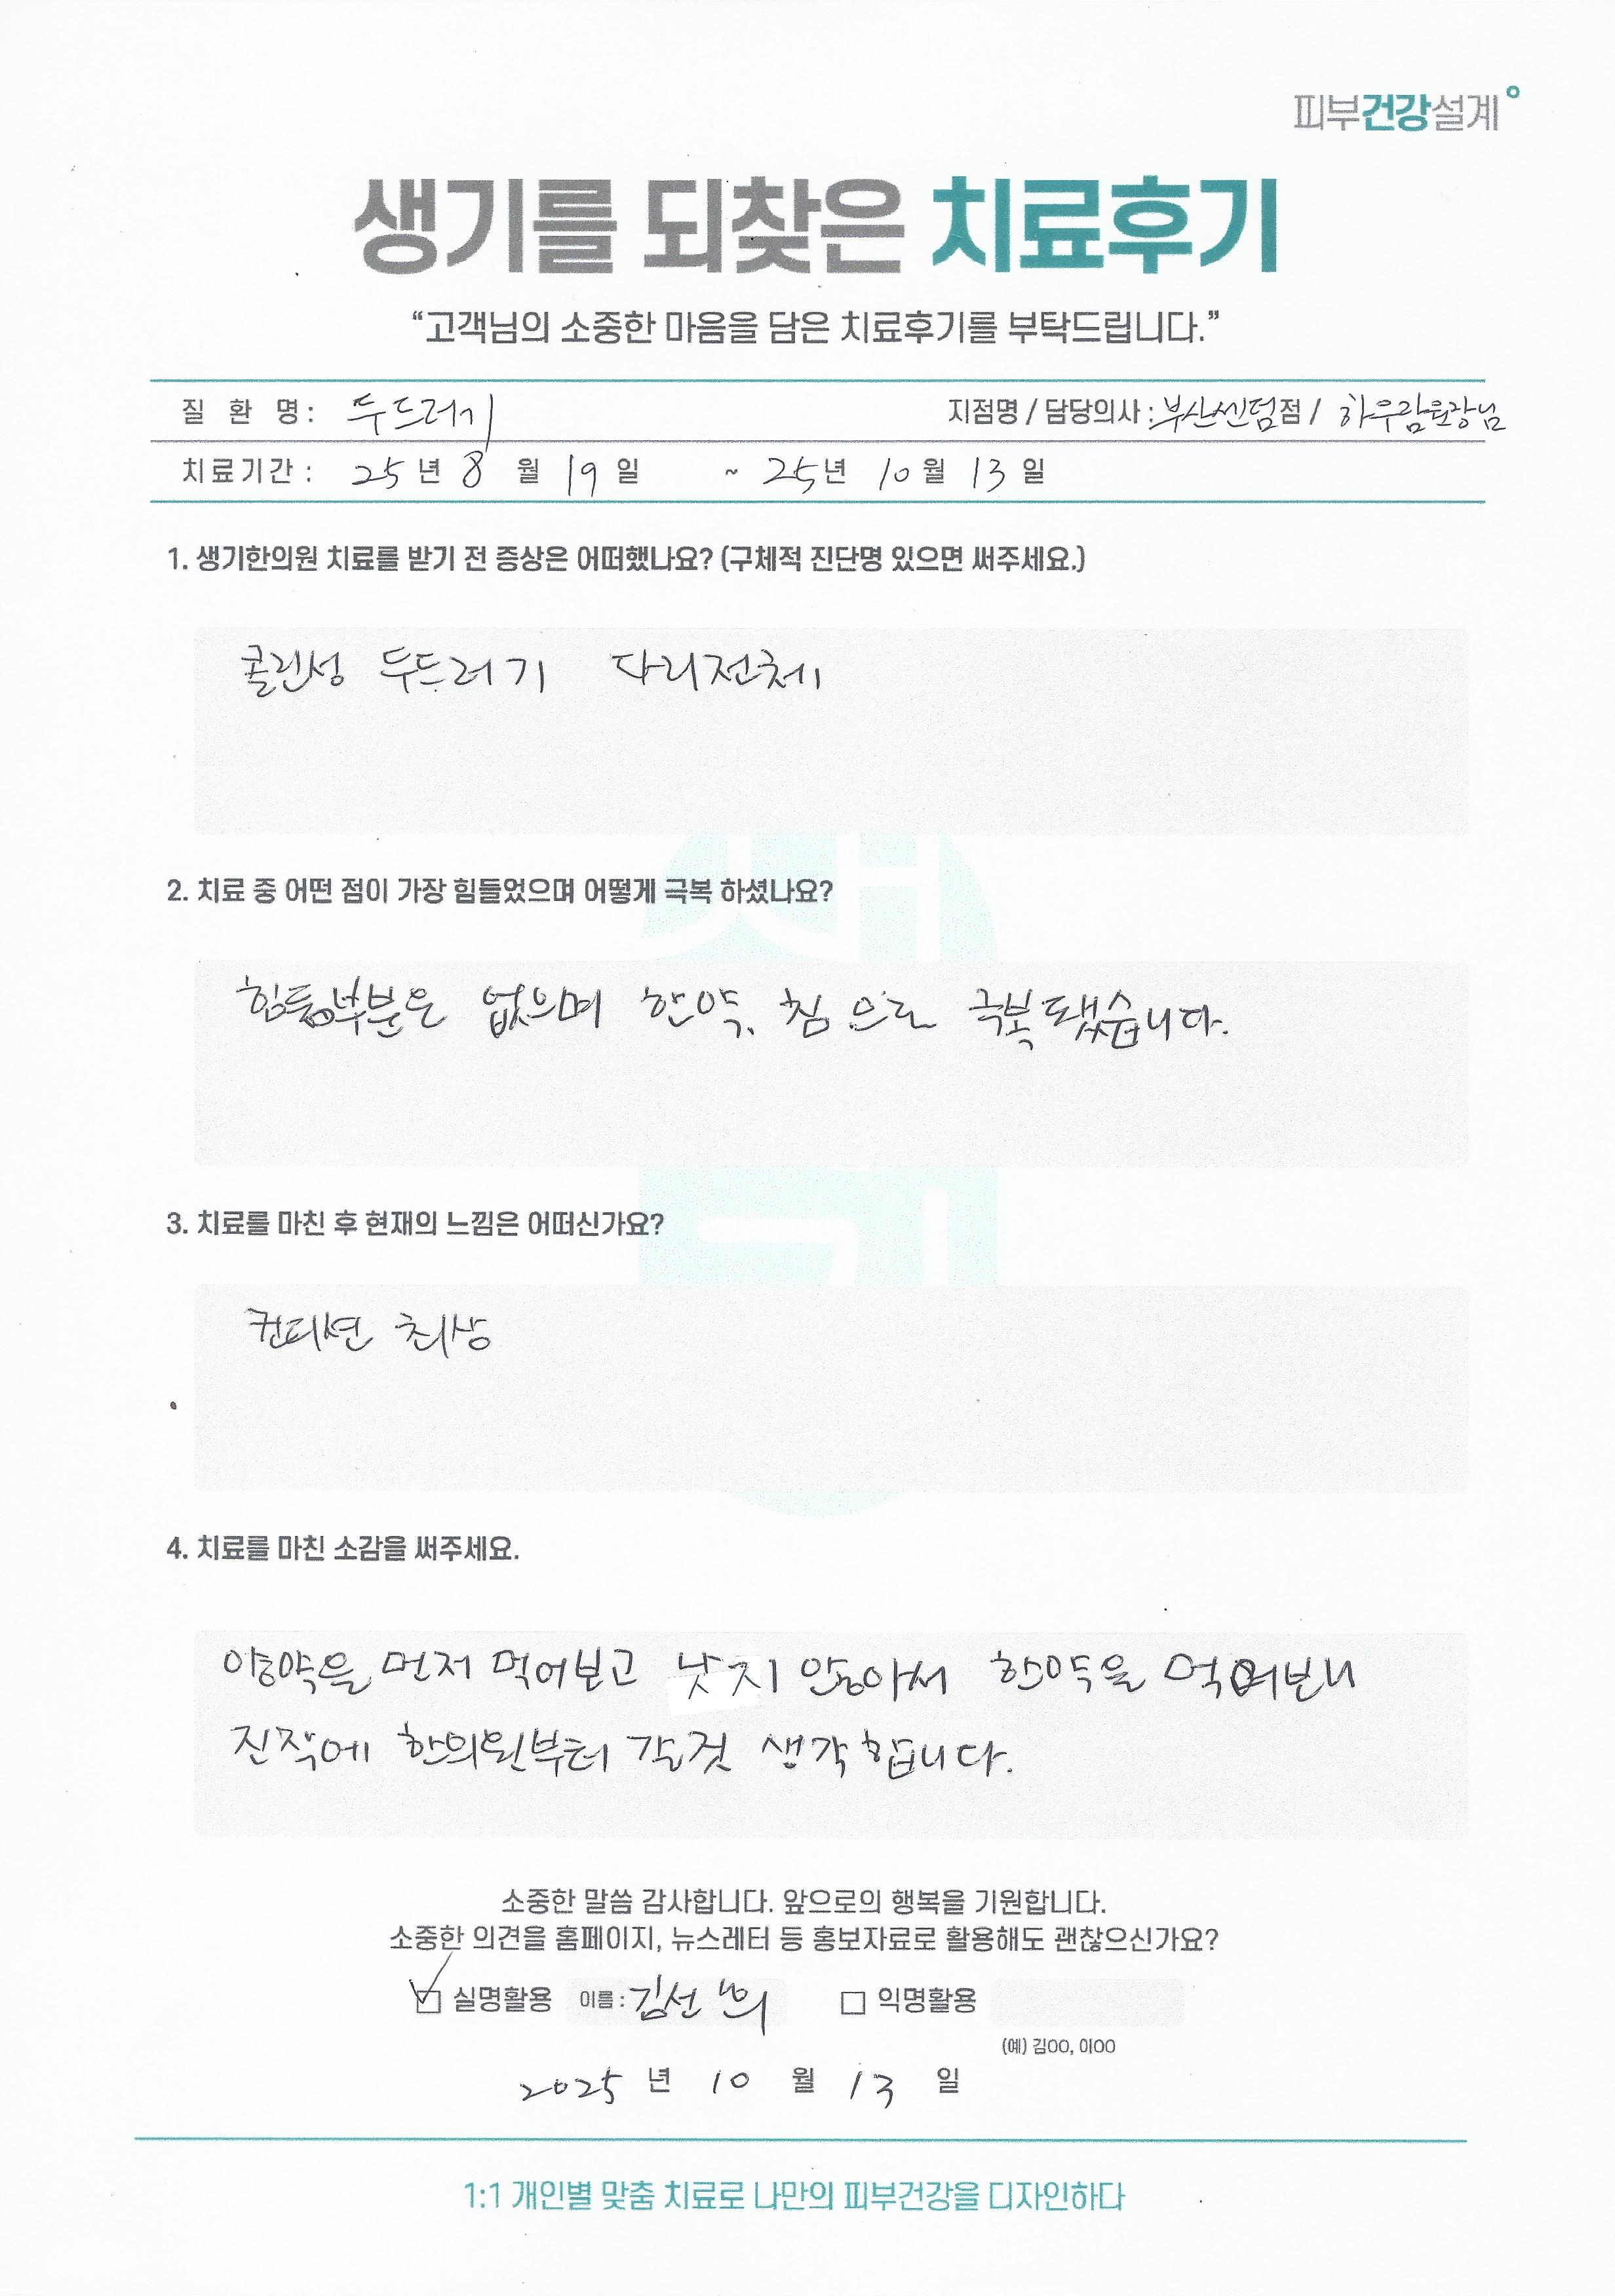 피부건강설계
생기를 되찾은 치료후기
“고객님의 소중한 마음을 담은 치료후기를 부탁드립니다.”
질 환 명 : 두드러기 지점명 / 담당의사 : 부산센텀점 / 하우람원장님
치료기간 : 25년 8월 19일 ~ 25년 10월 13일
1. 생기한의원 치료를 받기 전 증상은 어떠했나요? (구체적 진단명 있으면 써주세요.)
콜린성 두드러기 다리전체
2. 치료 중 어떤 점이 가장 힘들었으며 어떻게 극복 하셨나요?
힘든부분은 없으며 한약, 침 으로 극복됐습니다.
3. 치료를 마친 후 현재의 느낌은 어떠신가요?
컨디션 최상
4. 치료를 마친 소감을 써주세요.
양약을 먼저 먹어보고 낫지 않아서 한약을 먹어보니
진작에 한의원부터 갈것 생각합니다.
소중한 말씀 감사합니다. 앞으로의 행복을 기원합니다.
소중한 의견을 홈페이지, 뉴스레터 등 홍보자료로 활용해도 괜찮으신가요?
실명활용 이름 : 김선 익명활용
(예) 김OO, 이OO
2025 년 10 월 13 일
1:1 개인별 맞춤 치료로 나만의 피부건강을 디자인하다